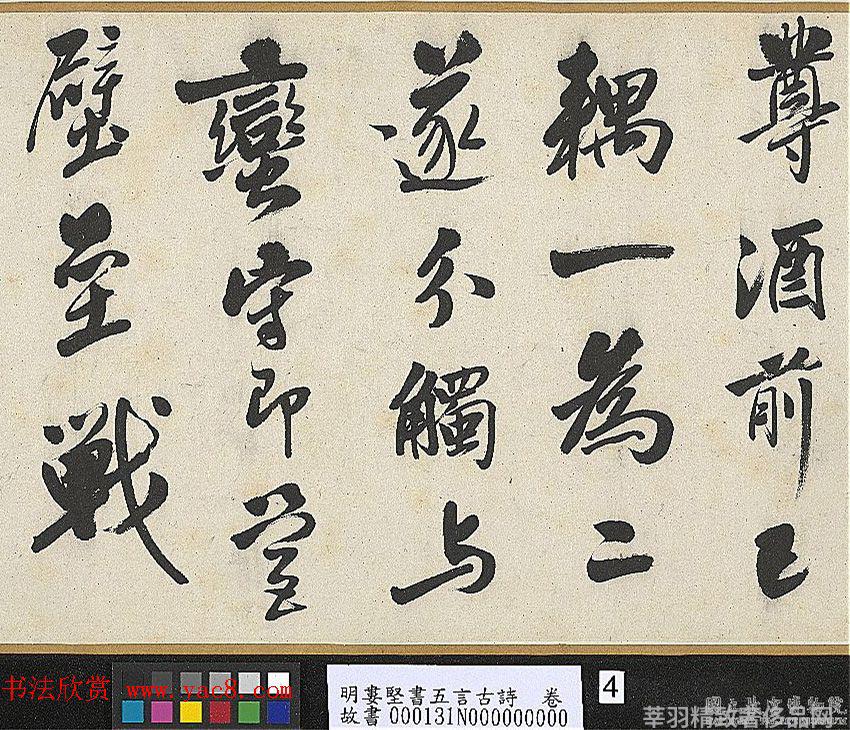 尊酒前已
耦一為二
遂分觸与
蠻守即營
壁壘戰
书法欣赏 www.yac8.com
明婁堅書五言古詩 卷
故書 000131N000000000
4
國立故宮博物院
莘羽精致奢侈品网